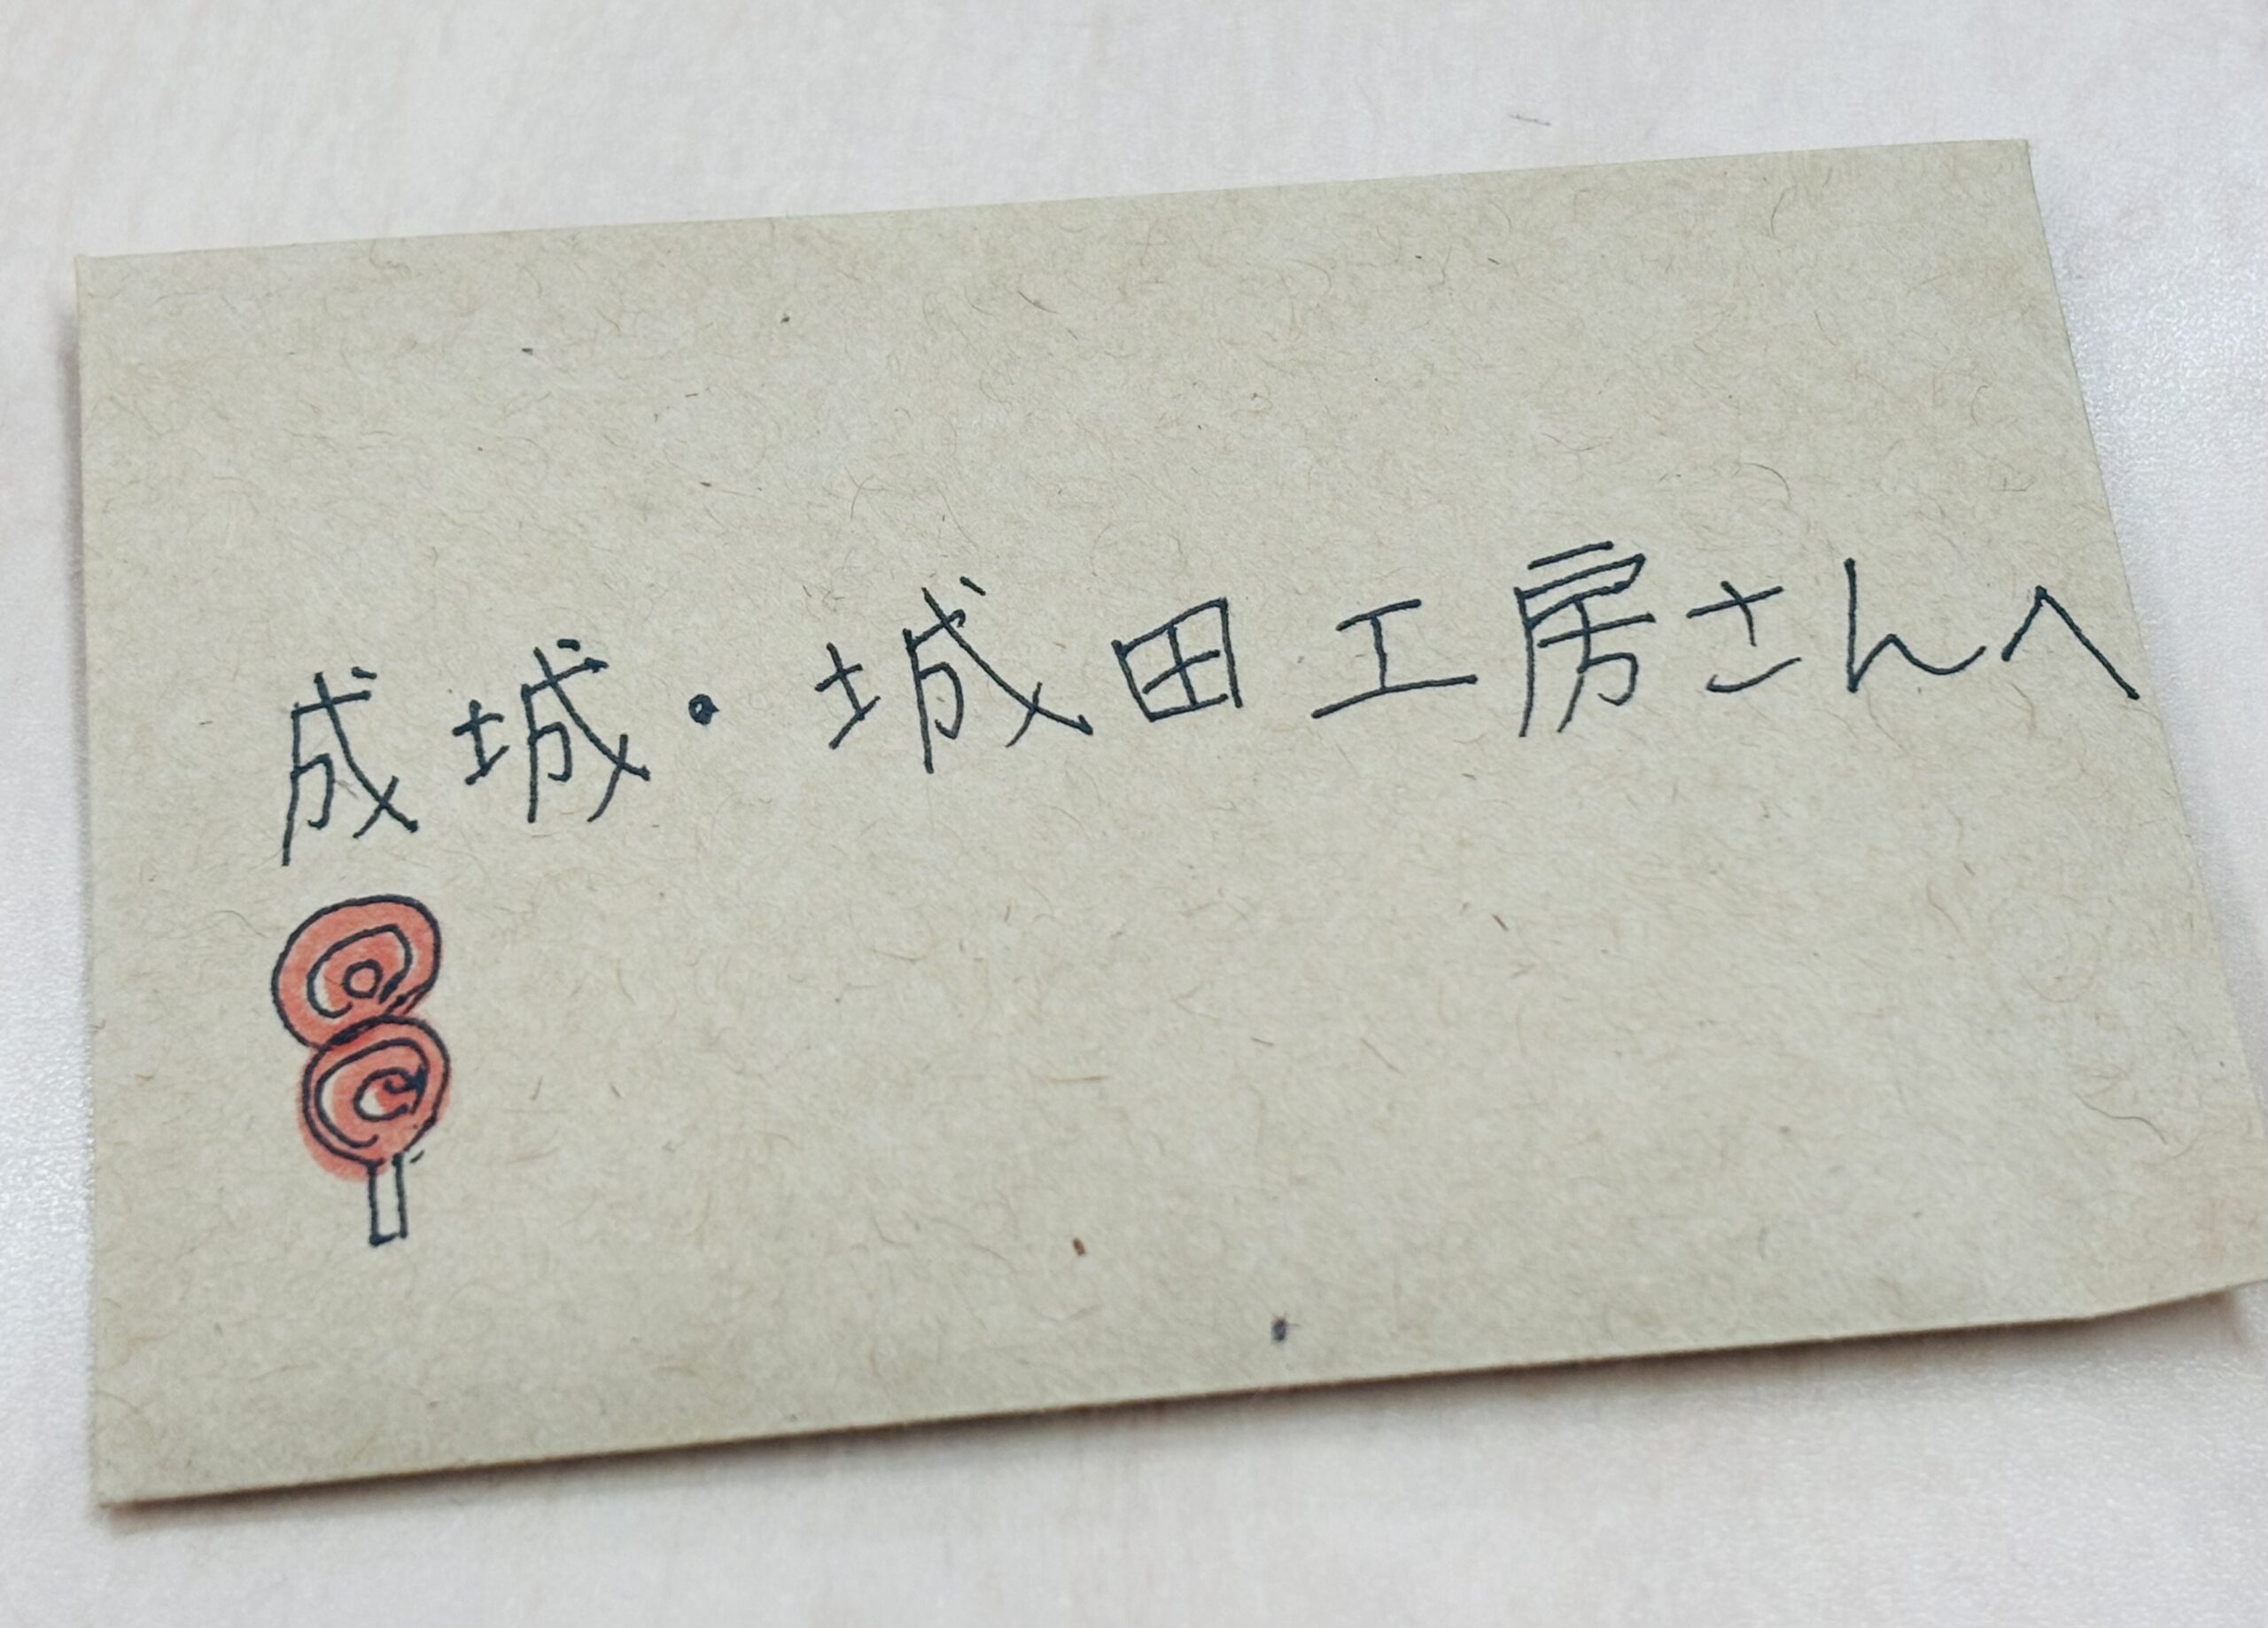 成城・城田工房さんへ